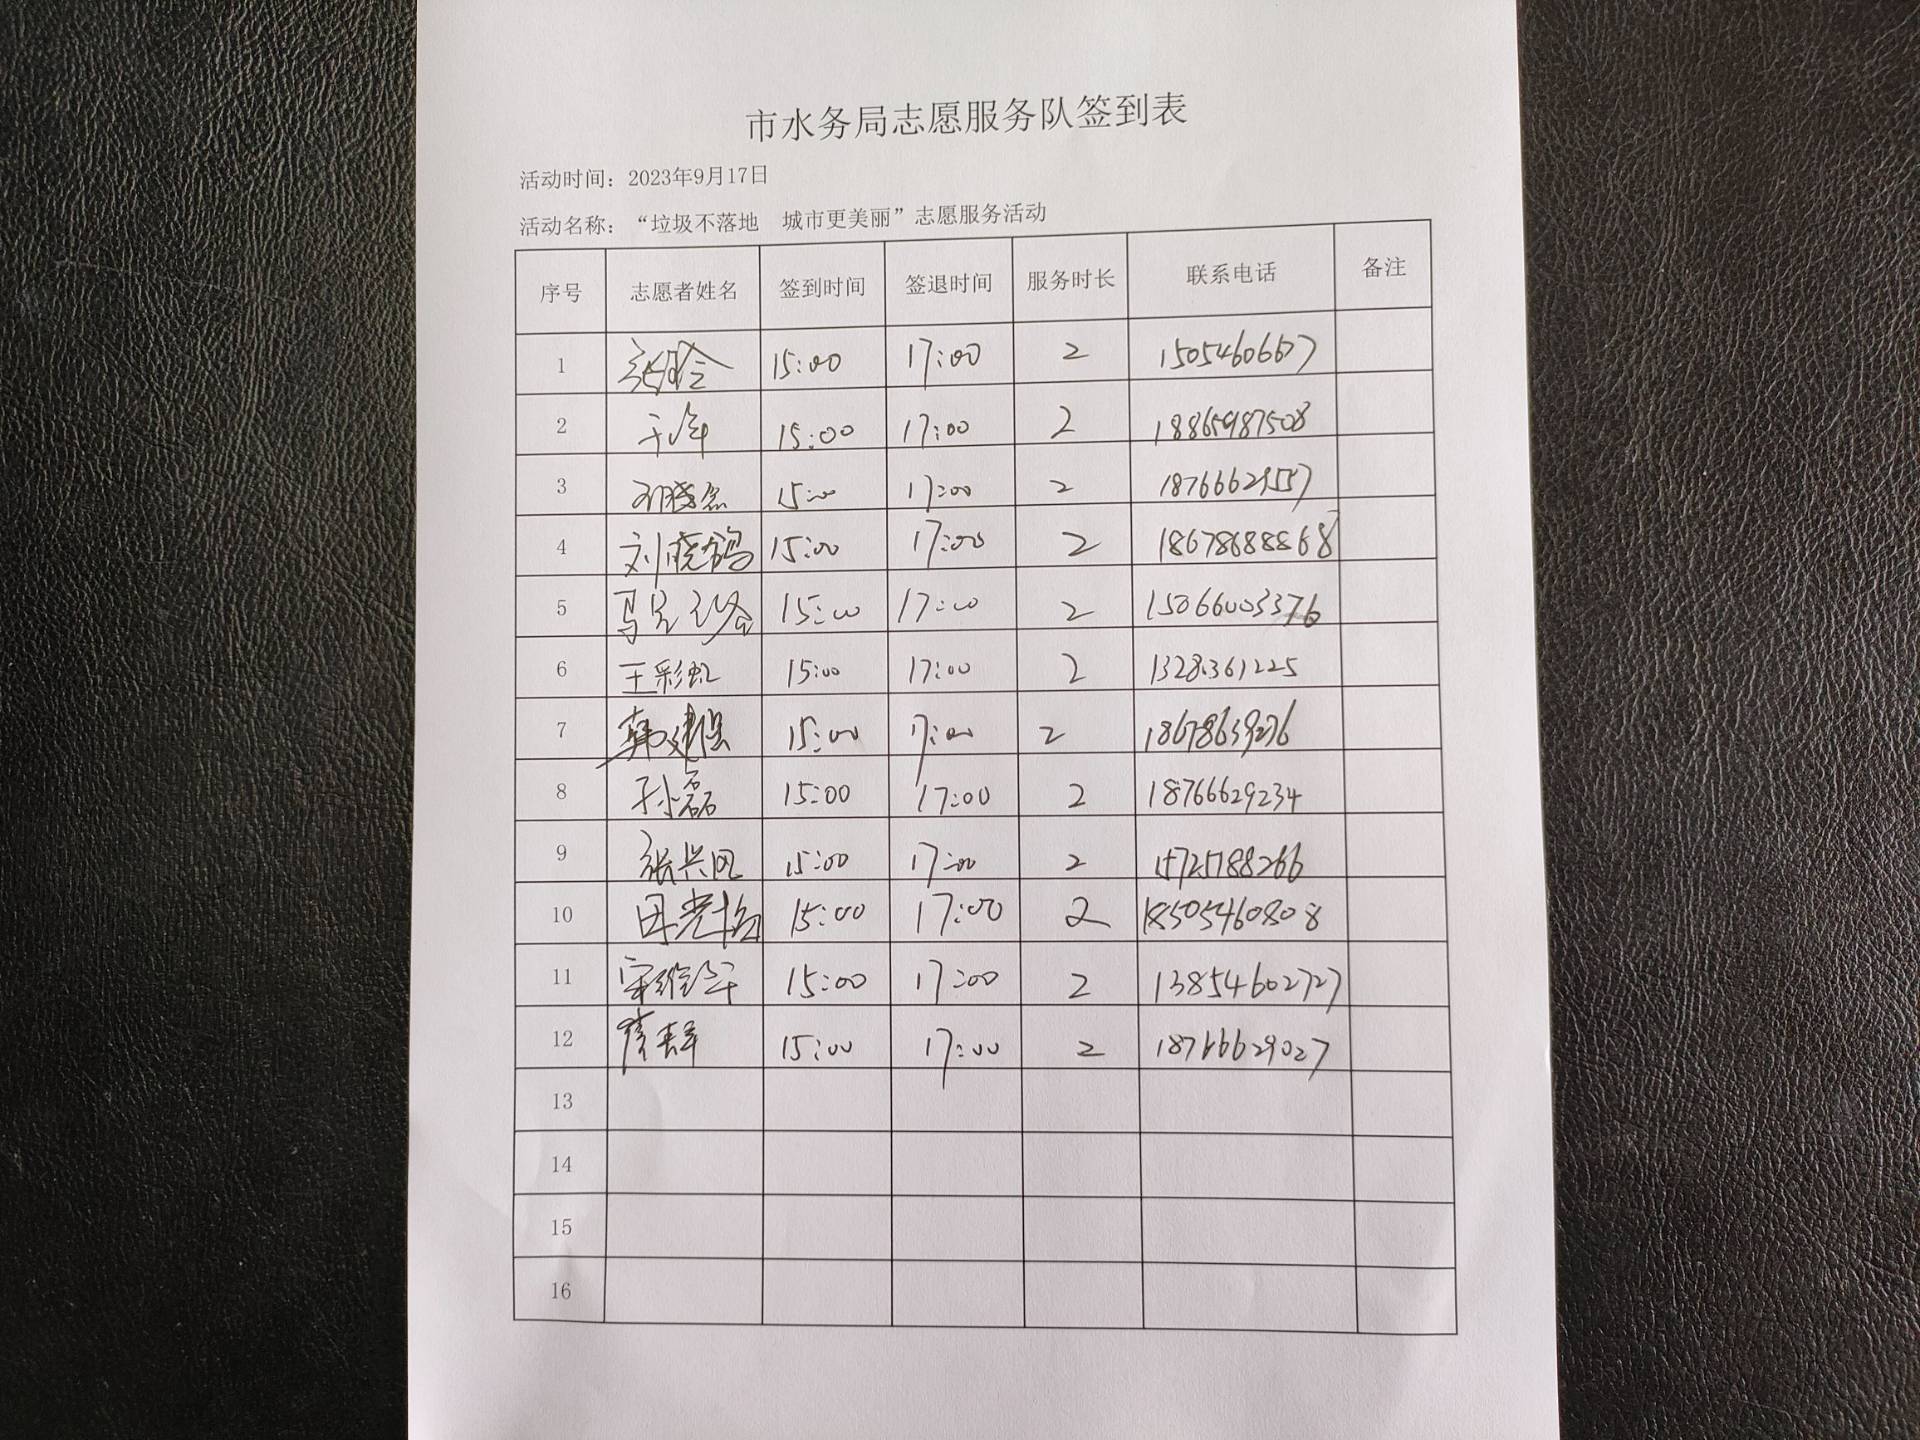 市水务局志愿服务队签到表
活动时间：2023年9月17日
活动名称：“垃圾不落地　城市更美丽”志愿服务活动
序号 志愿者姓名 签到时间 签退时间 服务时长 联系电话 备注
1 15:00 17:00 2
2 15:00 17:00 2 18865987508
3 15:00 17:00 2
4 刘晓鸽 15:00 17:00 2 18678688868
5 15:00 17:00 2 15066003376
6 王彩虹 15:00 17:00 2
7 韩建 15:00 17:00 2 18678639276
8 孙磊 15:00 17:00 2 18766629234
9 张兴 15:00 17:00 2 15725788266
10 15:00 17:00 2 18505460808
11 15:00 17:00 2 13854602727
12 15:00 17:00 2 18766629027
13
14
15
16